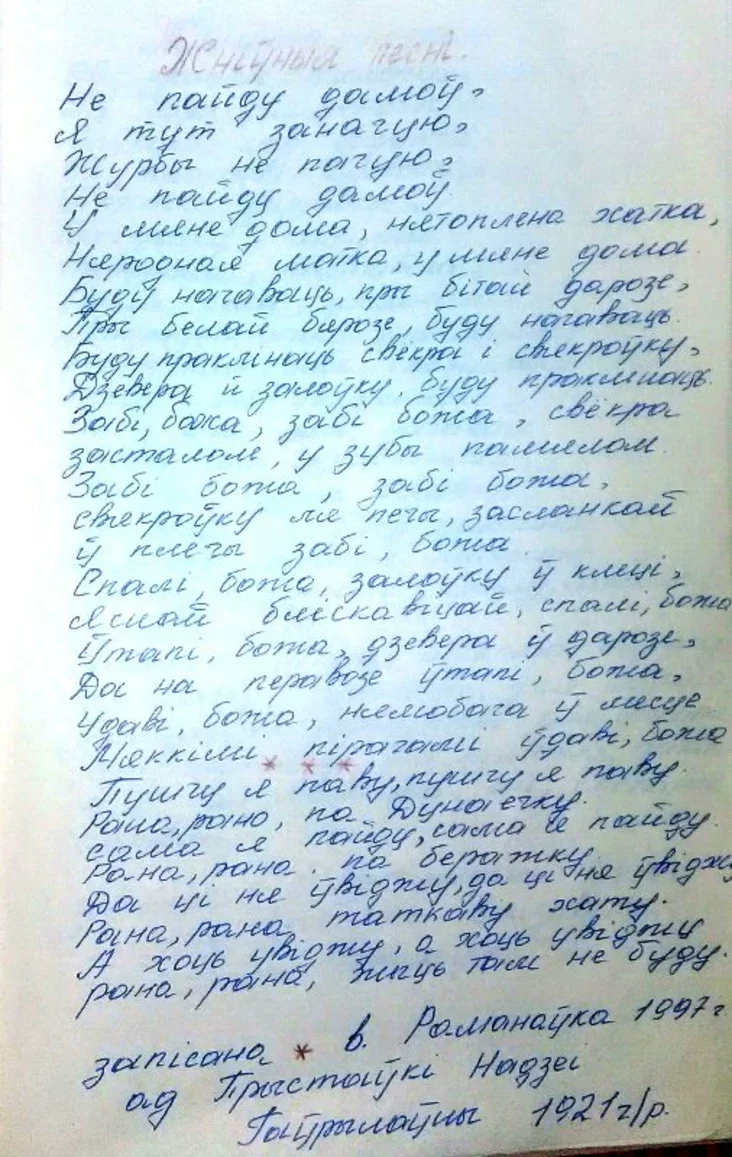 Жніўныя песні.
Не пайду дамоў,
Я тут заначую,
Журбы не пачую,
Не пайду дамоў.
У мяне дома, нятоплена хатка,
Няродная матка, у мяне дома.
Буду начаваць, пры бітай дарозе,
Пры белай бярозе, буду начаваць.
Буду праклінаць свёкра і свякроўку,
Дзевера й залоўку, буду праклінаць.
Забі, божа, забі божа, свёкра
засталом, у зубы памялом.
Забі божа, забі божа,
свякроўку ля печы, засланкай
ў плечы забі, божа.
Спалі, божа, залоўку ў клеці,
Яснай бліскавіцай, спалі, божа
Ўтапі, божа, дзевера ў дарозе,
Да на перавозе ўтапі, божа,
Удаві, божа, нямобага ў месце
Мяккімі пірагамі ўдаві, божа
* * *
Пушчу я паву, пушчу я паву.
Рана, рано, па Дунаечку.
сама я пайду, сама я пайду.
Рана, рана, па беражку
Да ці ня ўвіджу, да ці ня ўвіджу
Рана, рана, таткаву хату.
А хоць увіджу, а хоць увіджу
рана, рана, жыць там не буду.
запісана * в. Раманаўка 1997 г
ад Прыстаўкі Надзеі
Гаўрылаўны 1921 г/р.